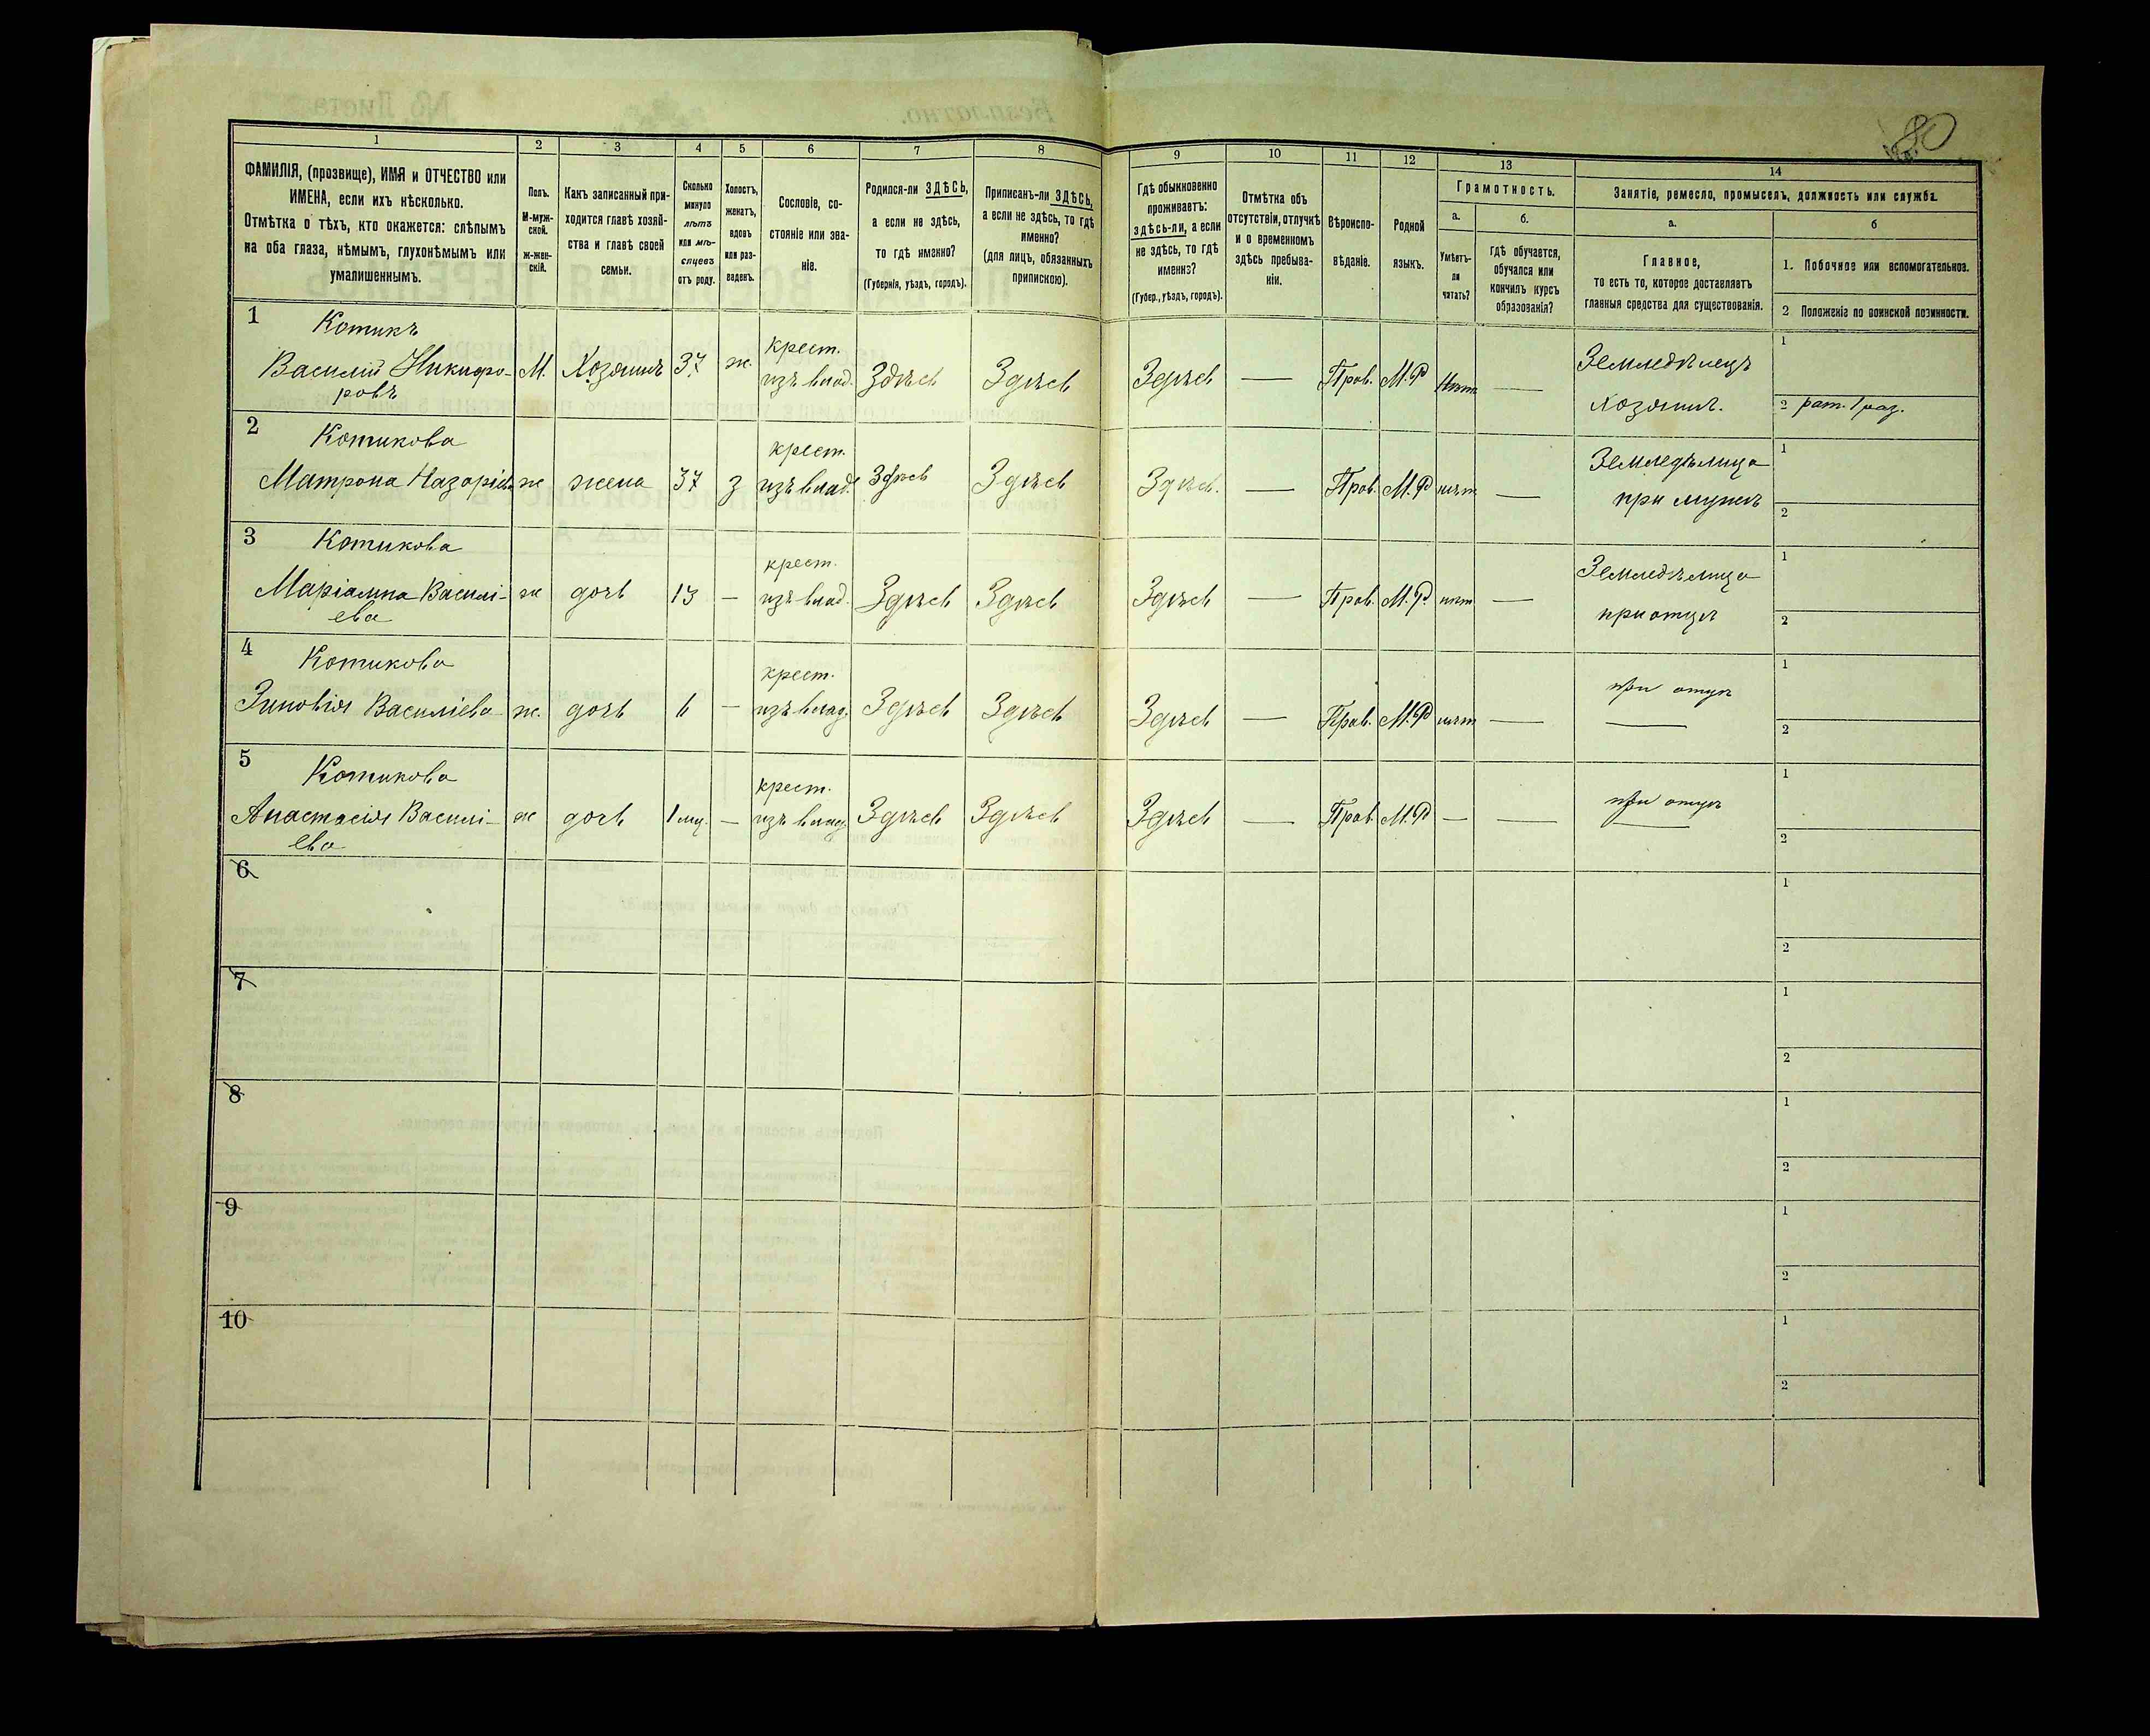 80
1
ФАМИЛІЯ, (прозвище), ИМЯ и ОТЧЕСТВО или
ИМЕНА, если ихъ нѣсколько.
Отмѣтка о тѣхъ, кто окажется: слѣпымъ
на оба глаза, нѣмымъ, глухонѣмымъ или
умалишеннымъ.
2
Полъ.
М-муж-
ской.
ж-жен-
скій.
3
Какъ записанный при-
ходится главѣ хозяй-
ства и главѣ своей
семьи.
4
Сколько
минуло
лѣтъ
или мѣ-
сяцевъ
отъ роду.
5
Холостъ,
женатъ,
вдовъ
или раз-
веденъ.
6
Сословіе, со-
стояніе или зва-
ніе.
7
Родился-ли ЗДѢСЬ,
а если не здѣсь,
то гдѣ именно?
(Губернія, уѣздъ, городъ).
8
Приписанъ-ли ЗДѢСЬ,
а если не здѣсь, то гдѣ
именно?
(для лицъ, обязанныхъ
припискою).
9
Гдѣ обыкновенно
проживаетъ:
здѣсь-ли, а если
не здѣсь, то гдѣ
именно?
(Губер., уѣздъ, городъ).
10
Отмѣтка объ
отсутствіи, отлучкѣ
и о временномъ
здѣсь пребыва-
ніи.
11
Вѣроиспо-
вѣданіе.
12
Родной
языкъ.
13
Грамотность.
а.
Умѣетъ-
ли
читать?
б.
Гдѣ обучается,
обучался или
кончилъ курсъ
образованія?
14
Занятіе, ремесло, промыселъ, должность или служба.
а.
Главное,
то есть то, которое доставляетъ
главныя средства для существованія.
б
1. Побочное или вспомогательное.
2 Положеніе по воинской повинности.
1
Котикъ
Василій Никифо-
ровъ
М.
Хозяинъ
37
ж.
крест.
изъ влад.
Здѣсь
Здѣсь
Здѣсь
—
Прав.
М.Р
Нѣтъ
—
Земледѣлецъ
хозяинъ.
1
2 рат. 1 раз.
2
Котикова
Матрона Назаріева
ж
жена
37
з
крест.
изъ влад.
Здѣсь
Здѣсь
Здѣсь.
—
Прав.
М.Р
нѣт
—
Земледѣлица
при мужѣ
1
2
3
Котикова
Маріанна Василі-
ева
ж
дочь
13
—
крест.
изъ влад.
Здѣсь
Здѣсь
Здѣсь
—
Прав.
М.Р.
нѣт
—
Земледѣлица
при отцѣ
1
2
4
Котикова
Зиновія Василіева
ж.
дочь
—
крест.
изъ влад.
Здѣсь
Здѣсь
Здѣсь
—
Прав.
М.Р
нѣт
—
при отцѣ
1
2
5
Котикова
Анастасія Василі-
ева
ж
дочь
1 мц.
—
крест.
изъ влад.
Здѣсь
Здѣсь
Здѣсь
—
Прав
М.Р
—
—
при отцѣ
1
2
6
1
2
7
1
2
8
1
2
9
1
2
10
1
2